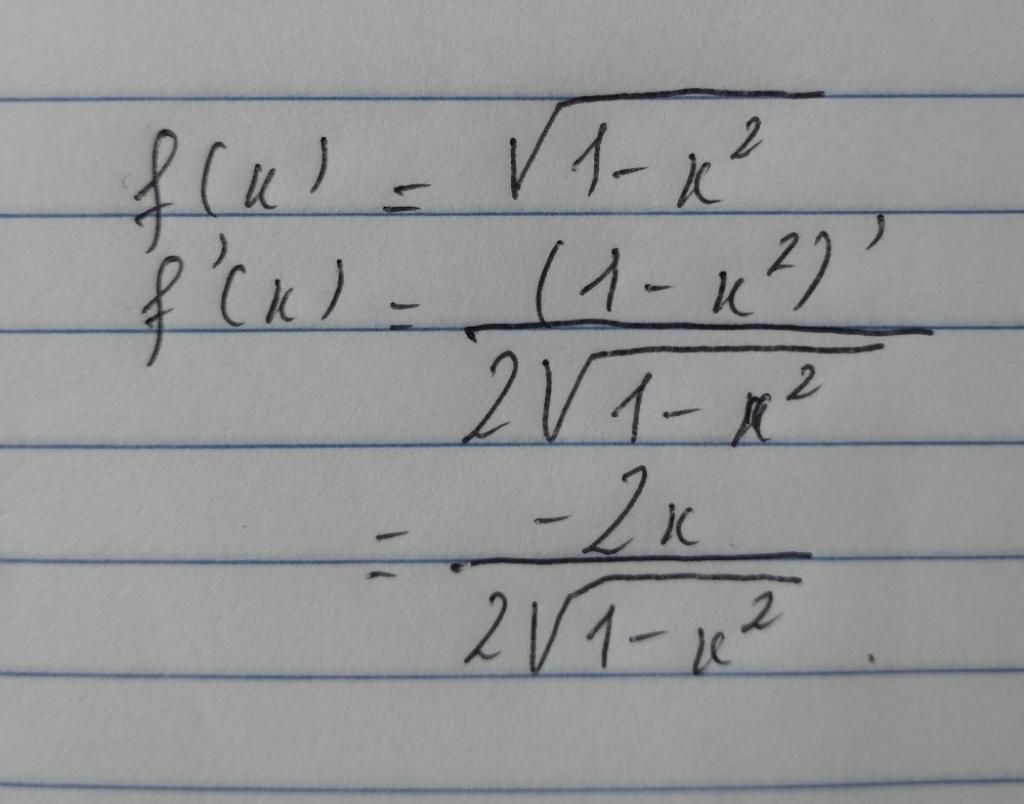 f(x) = √(1-x²)
f'(x) = (1-x²)' / 2√(1-x²)
= -2x / 2√(1-x²) .